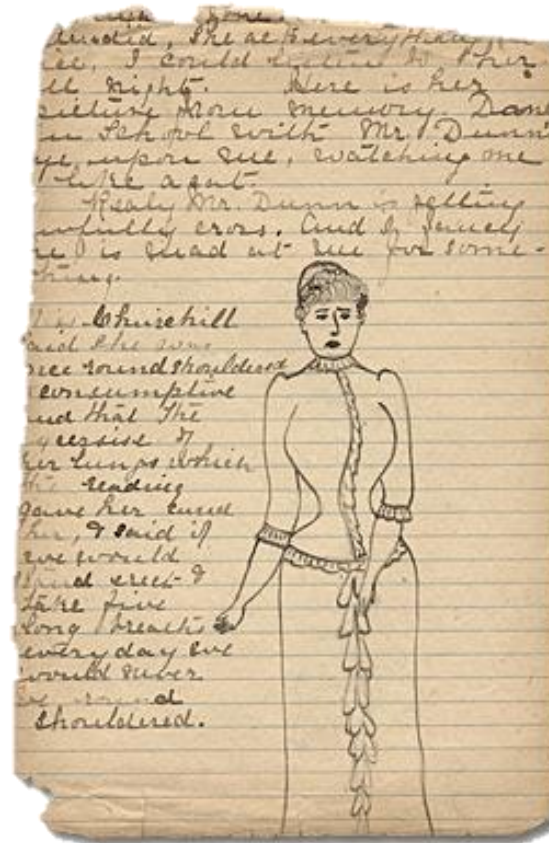 did, She acts everything
I could listen to her
ll night. Here is her
picture from memory. Dane
in School with Mr. Dunn
upon me, watching me
like a cat.
Realy Mr. Dunn is getting
wfully cross. And I fancy
he is mad at me for some-
thing.
Churchill
said she was
once roundshouldered
consumptive
and that the
exersise of
her lungs which
the reading
gave her cured
her, I said if
we would
stand erect &
take five
long breaths
everyday we
would never
be round
shouldered.